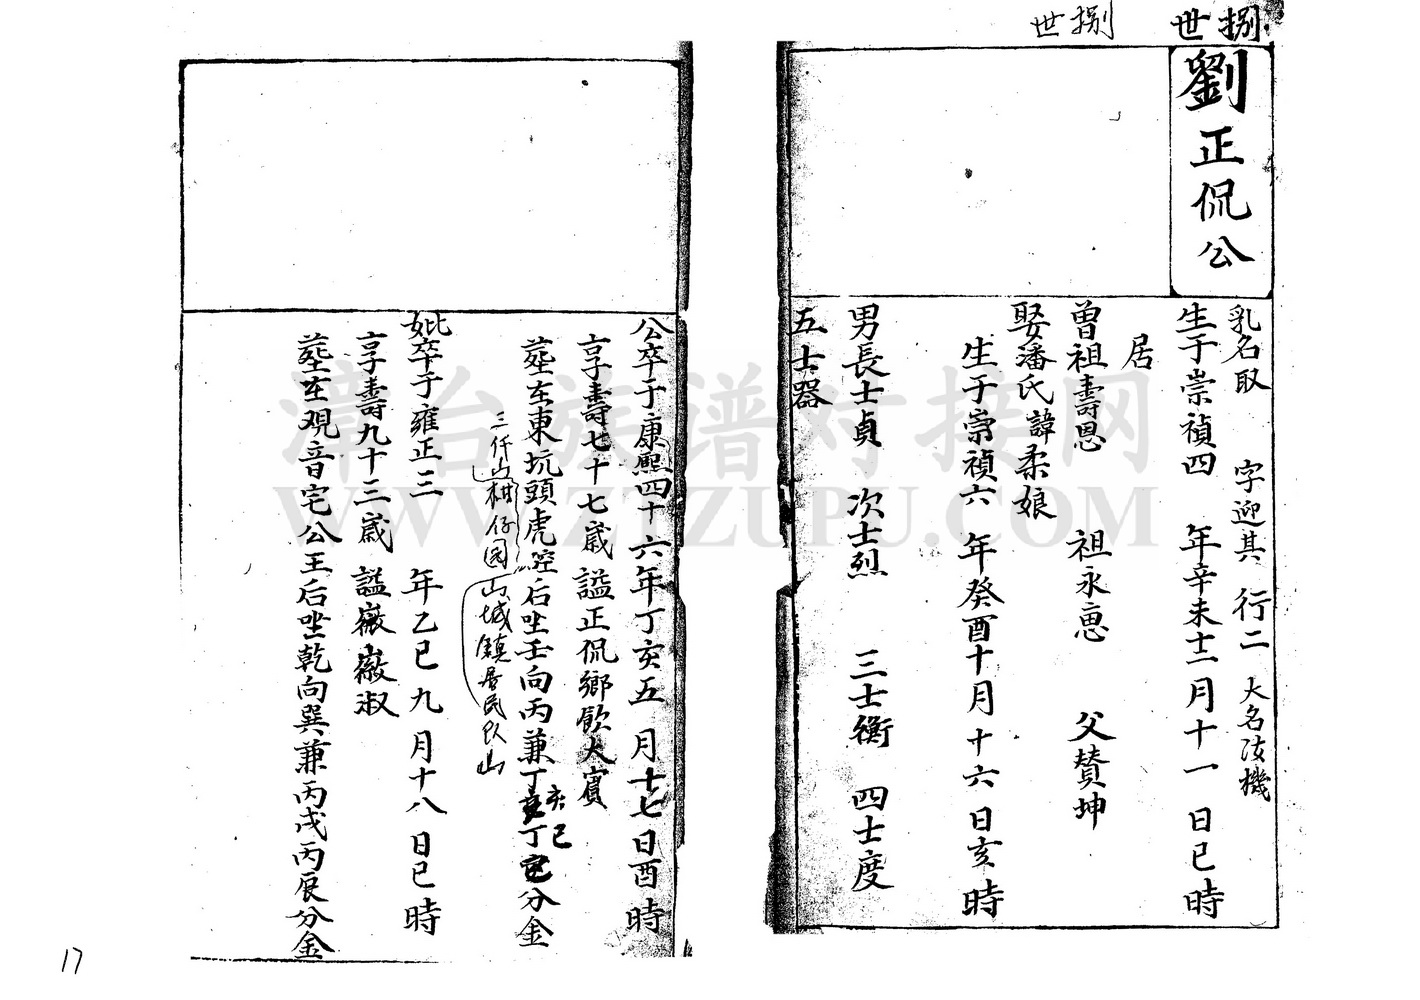 世捌
世捌
劉正侃公
乳名取 字迎其 行二 大名汝機
生于崇禎四 年辛未十二月十一日巳時
居
曾祖壽恩 祖永惠 父贊坤
娶潘氏諱柔娘
生于崇禎六 年癸酉十月十六日亥時
男長士貞 次士烈 三士衡 四士度
五士器
公卒于康熙四十六年丁亥五月十七日酉時
享壽七十七歲 謚正侃鄉飲大賓
葬在東坑頭虎 后坐壬向丙兼丁亥丁巳分金
亥巳
三仟山柑仔园山城鎮居民 山
妣卒于雍正三 年乙巳九月十八日巳時
享壽九十三歲 謚嶶嶶淑
葬在观音宅公王后坐乾向巽兼丙戌丙辰分金
漳台族谱对接网
WWW.ZTZUPU.COM
17